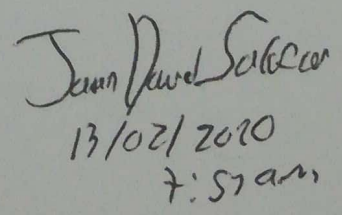 Juan David Salazar
13/02/2020
7:57am